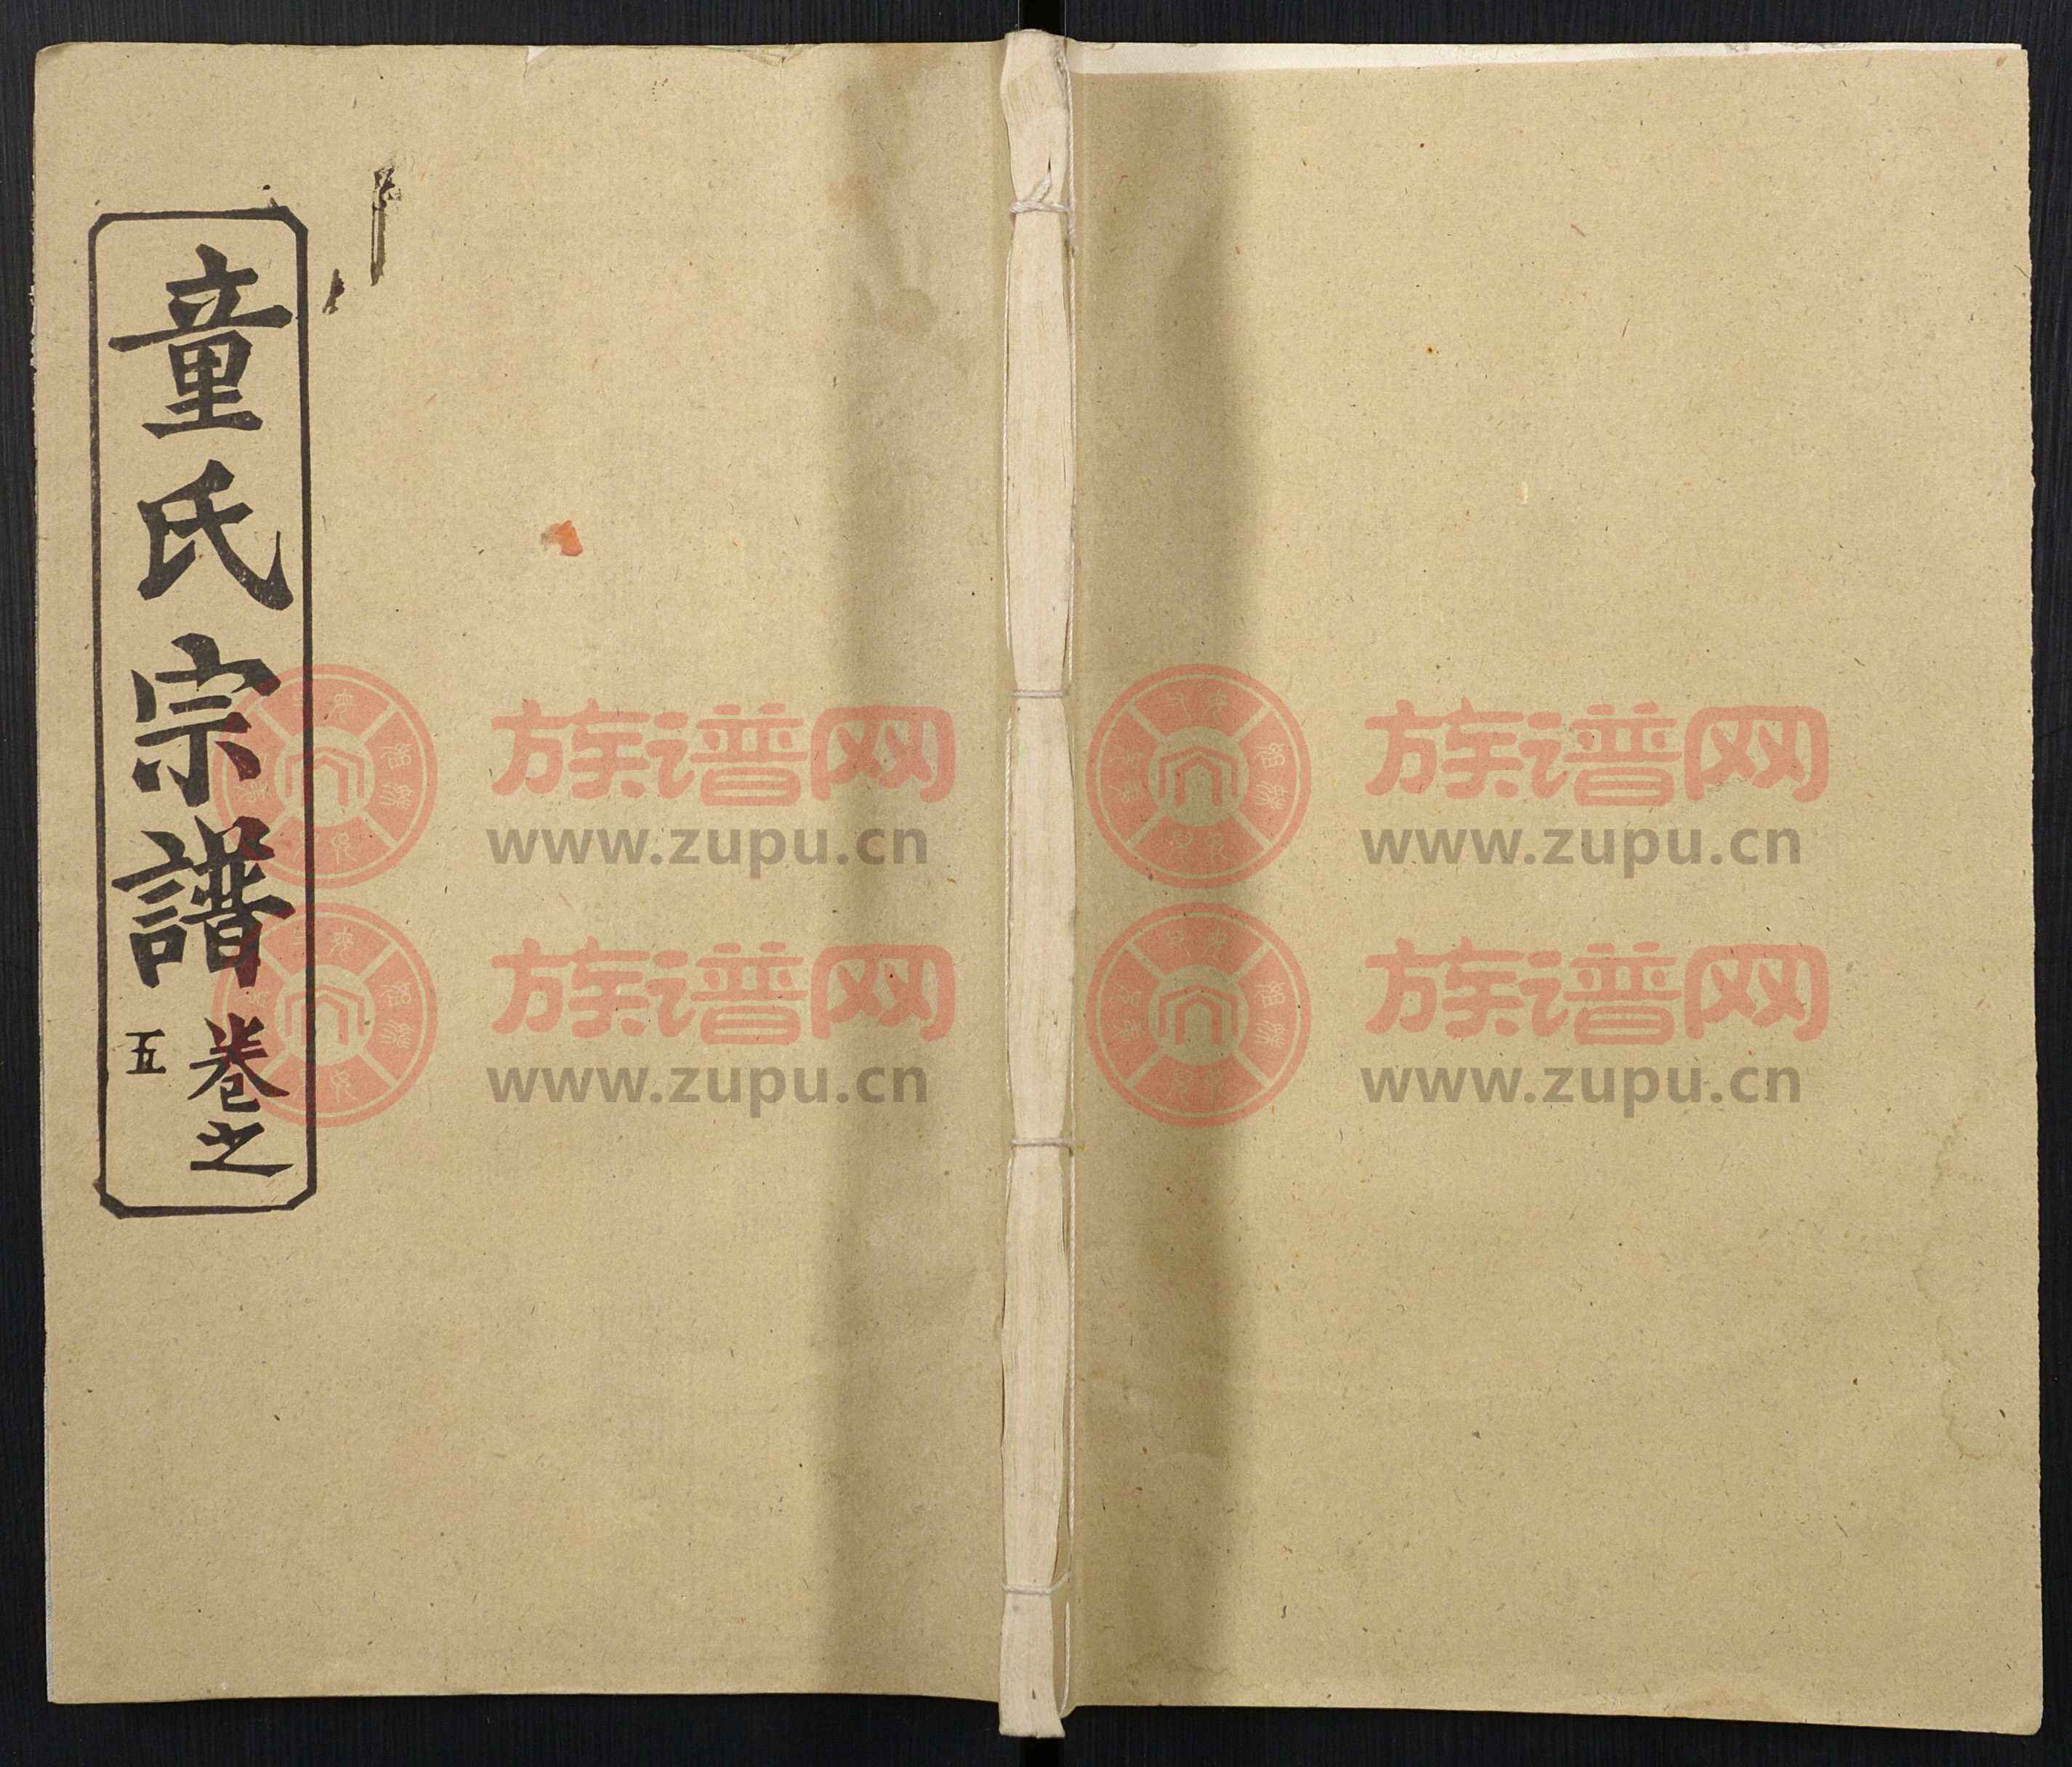 童氏宗譜
卷之
五
族谱网
www.zupu.cn
族谱网
www.zupu.cn
族谱网
www.zupu.cn
族谱网
www.zupu.cn